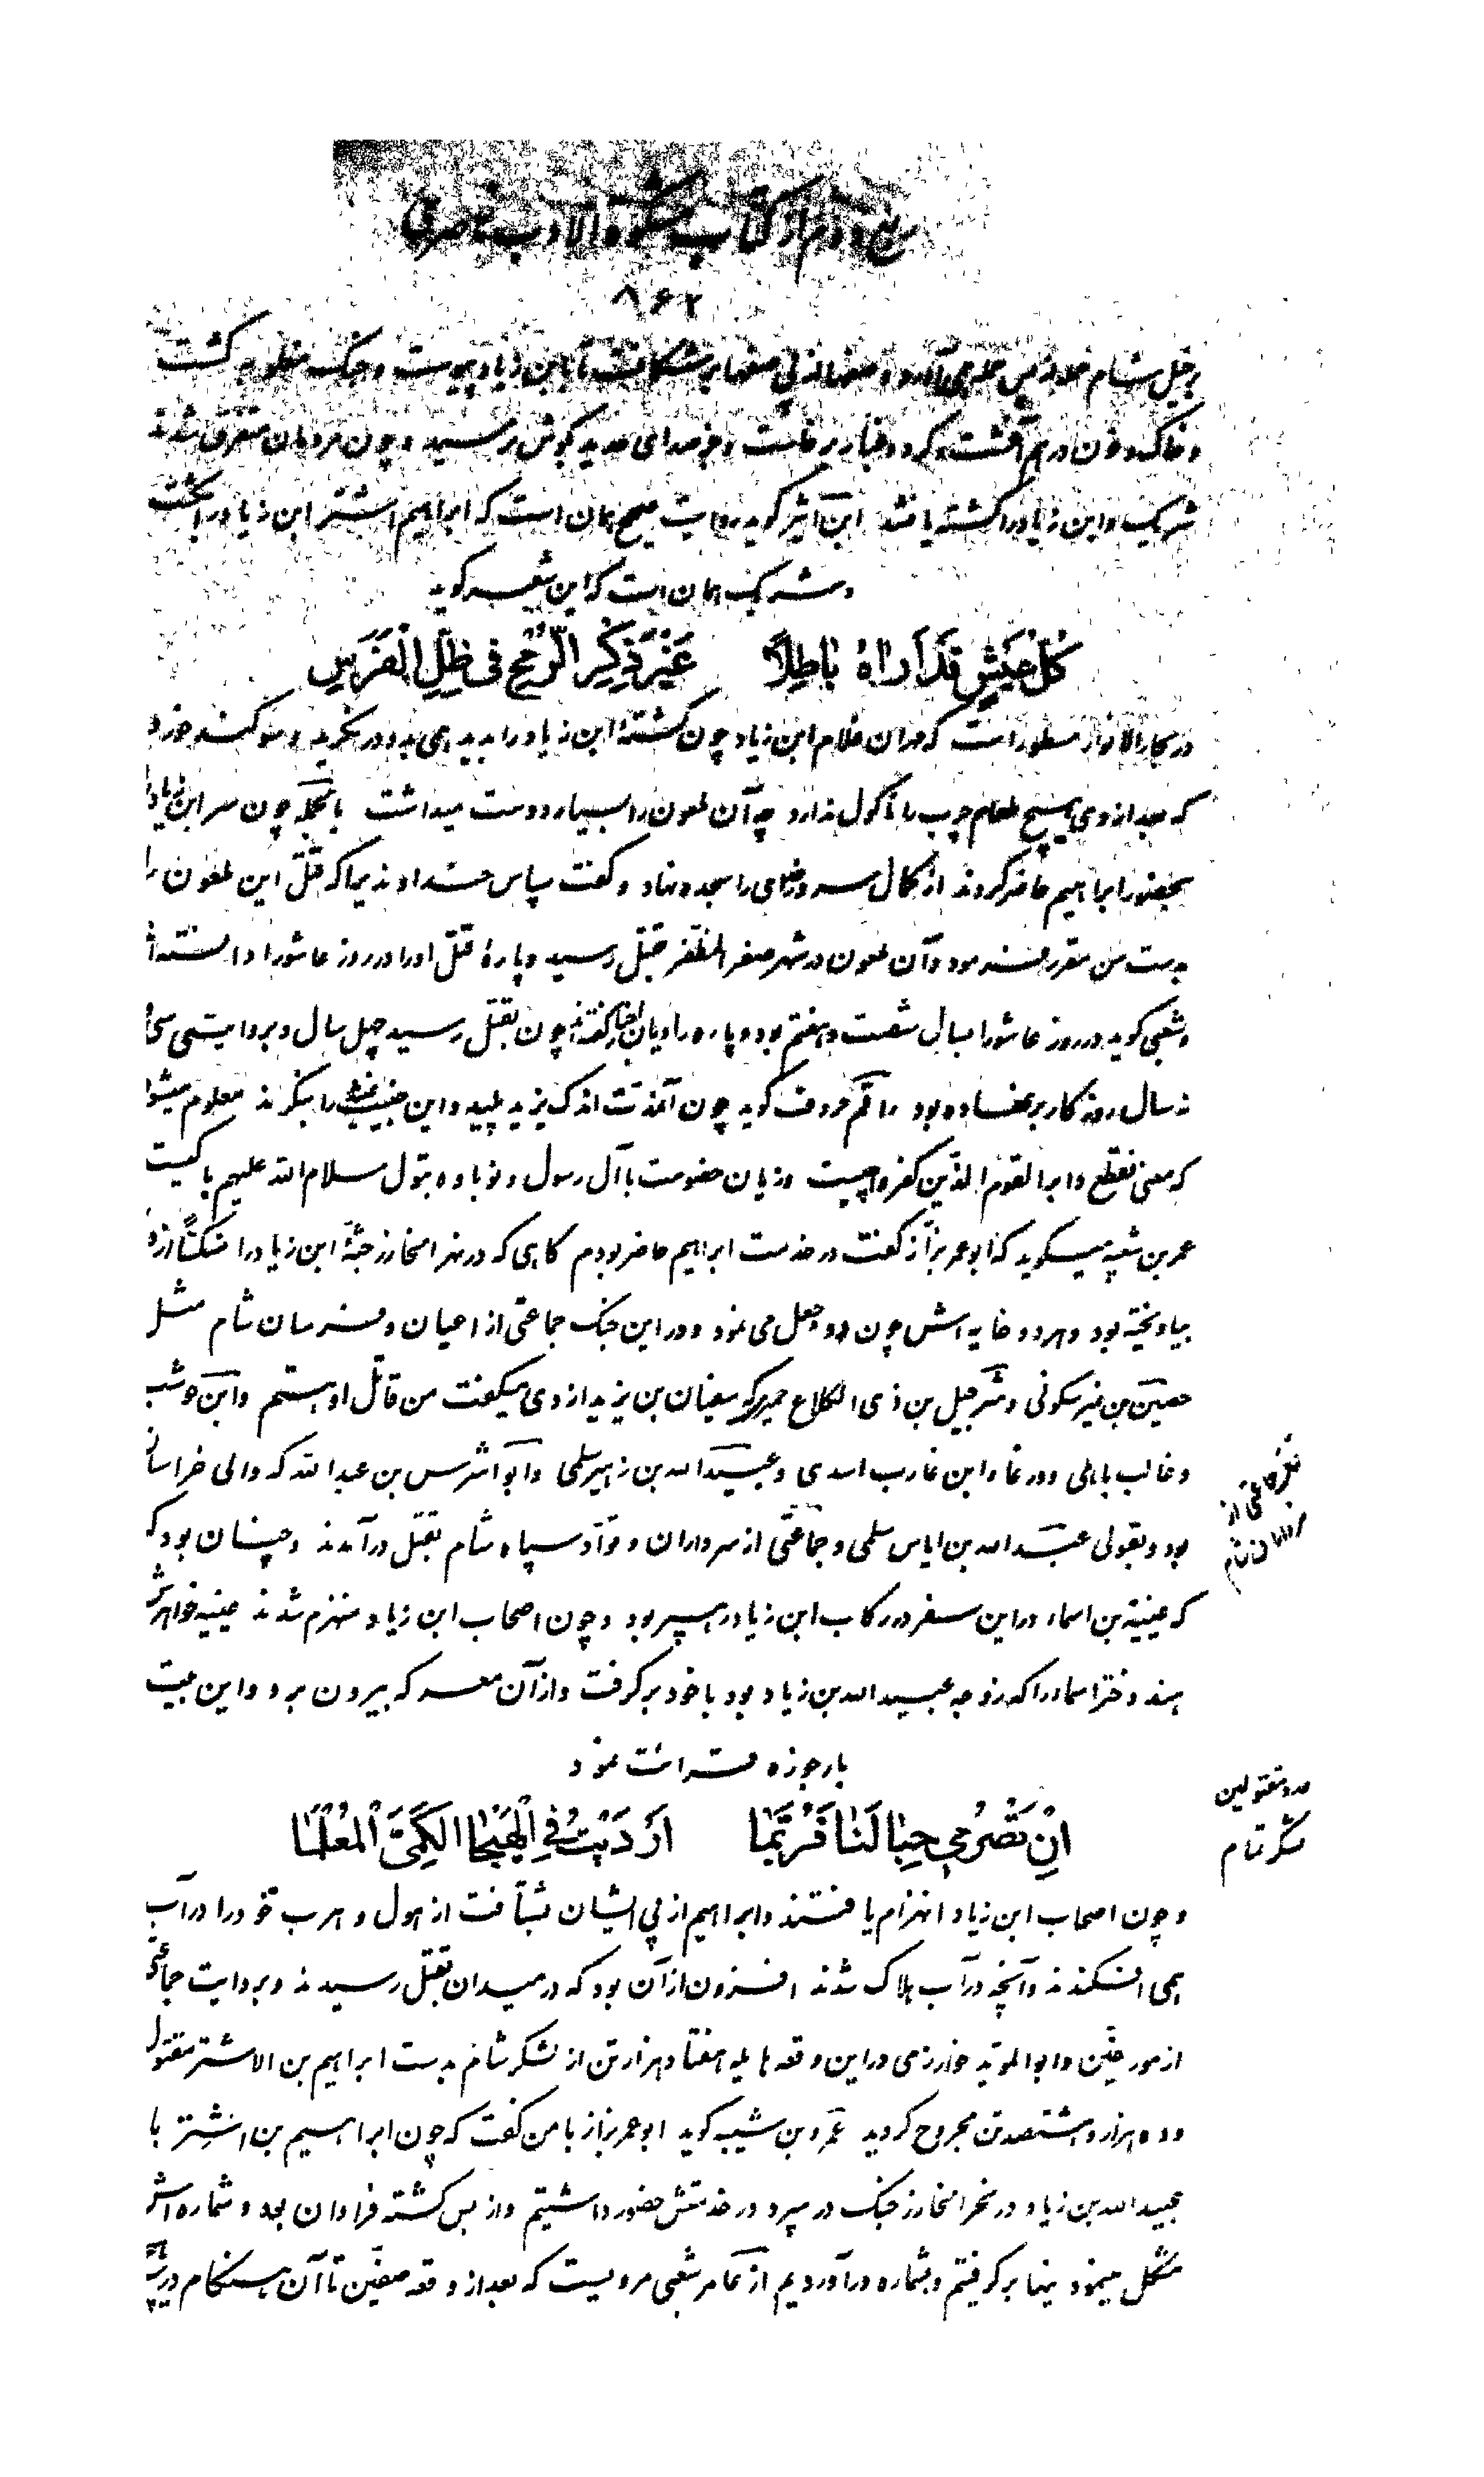 ربع دوم از کتاب مشکوة الادب ناصری
۸۶۲
بر خیل شام حمله آورد و صفها از پی صفها بر شکافت تا بابن زیاد پیوست و جنگ مغلوبه گشت
و خاک و خون در هم آغشت و گرد و غبار برخاست و جز صدای حدید بگوش نرسید و چون مردمان متفرق شدند
شریک و ابن زیاد را کشته یافتند ابن اثیر گوید روایت صحیح همان است که ابراهیم اشتر ابن زیاد را بکشت
و شریک همان است که این شعر گوید
كُلُّ عَيْشٍ قَدْ اَرَاهُ بَاطِلاً غَيْرَ ذِكْرِ الرُّمْحِ فى ظِلِّ الْفَرَسِ
در بحار الانوار مسطور است که مهران غلام ابن زیاد چون کشتهٔ ابن زیاد را بدید همی بدو در نگرید و سوگند خورد
که بعد از وی هیچ طعام چرب را ماکول ندارد چه آن ملعون را بسیار دوست میداشت بالجمله چون سر ابن زیاد را
بحضور ابراهیم حاضر کردند از کمال سرور خدای را سجده نهاد و گفت سپاس خداوندیرا که قتل این ملعون را
بدست من مقرر فرمود و آن ملعون در شهر صفر المظفر بقتل رسید و پارهٔ قتل او را در روز عاشورا دانسته‌اند
و شعبی گوید در روز عاشورا بسال شصت و هفتم بود و پاره راویان اخبار گفته‌اند چون بقتل رسید چهل سال و بروایتی سی و
نه سال روزگار بر نهاده بود راقم حروف گوید چون اندک یزید پلید و این خبیث را بنگرند معلوم میشود
که معنی فقطع دابر القوم الذین کفروا چیست و زیان خصومت با آل رسول و نوباوه بتول سلام الله علیهم با کیست
عمر بن شبه میگوید که ابو عمر بزاز گفت در خدمت ابراهیم حاضر بودم گاهی که در نهر الخازر جثهٔ ابن زیاد را
بیاویخته بود و هر دو خایه اش چون دو جعل می نمود و در این جنگ جماعتی از اعیان و فرسان شام مثل
حصین بن نمیر سکونی و شرحبیل بن ذی الکلاع حمیری که سفیان بن یزید ازدی میگفت من قاتل او هستم و ابن حوشب
و غالب باهلی و ابن غارب اسدی و عبیدالله بن زهیر سلمی و ابو اشرس بن عبدالله که والی خراسان
بود و بقولی عبدالله بن ایاس سلمی و جماعتی از سرداران و قواد سپاه شام بقتل درآمدند و چنان بود که
که عیینة بن اسماء در این سفر در رکاب ابن زیاد رهسپر بود و چون اصحاب ابن زیاد منهزم شدند عیینه خواهرش
هند دختر اسماء را که زوجه عبیدالله بن زیاد بود با خود برگرفت و از آن معرکه بیرون برد و این بیت
بارجوزه قرائت نمود
اِنْ تَصْرُمِى حِبَالَنَا فَرُبَّمَا اَرْدَيْتُ فِى الْهَيْجَا الْكَمِىَّ الْمُعْلَمَا
و چون اصحاب ابن زیاد انهزام یافتند و ابراهیم از پی ایشان بشتافت از هول و هرب خود را در آب
همی افکندند و آنچه در آب هلاک شدند افزون از آن بود که در میدان بقتل رسیدند و بروایت جماعتی
از مورخین و ابو الموید خوارزمی در این وقعه هایله هفتاد هزار تن از لشکر شام بدست ابراهیم بن الاشتر مقتول
و ده هزار و هشتصد تن مجروح گردید عمرو بن شیب گوید ابو عمر بزاز با من گفت که چون ابراهیم بن اشتر با
عبیدالله بن زیاد در نهر الخازر جنگ در سپرد در خدمتش حضور داشتیم و از بس کشته فراوان بود و شماره‌اش
مشکل مینمود نیها برگرفتیم و بشماره درآوردیم از عامر شعبی مرویست که بعد از وقعه صفین تا آن هنگام در
از
عدد مقتولین
لشکر شام